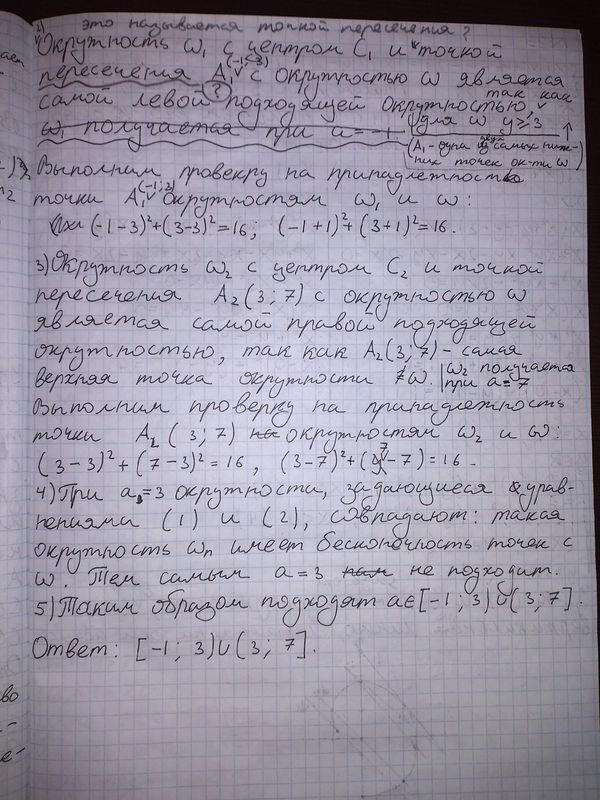 2) это называется точкой пересечения?
Окружность ω₁ с центром C₁ и точкой
пересечения A₁ (-1; 3) с окружностью ω является
самой левой подходящей окружностью, так как
ω₁ получается при a = -1 для ω y ≥ 3
(A₁ - одна из двух самых ниж-
них точек ок-ти ω)
Выполним проверку на принадлежность
точки A₁ (-1; 3) окружностям ω₁ и ω:
(-1-3)²+(3-3)²=16; (-1+1)²+(3+1)²=16.
3) Окружность ω₂ с центром C₂ и точкой
пересечения A₂(3; 7) с окружностью ω
является самой правой подходящей
окружностью, так как A₂(3; 7) - самая
верхняя точка окружности ω. ω₂ получается
при a = 7
Выполним проверку на принадлежность
точки A₂ (3; 7) окружностям ω₂ и ω:
(3-3)²+(7-3)²=16, (3-7)²+(7-7)=16.
4) При a=3 окружности, задающиеся урав-
нениями (1) и (2), совпадают: такая
окружность ωₙ имеет бесконечность точек с
ω. Тем самым a=3 нам не подходит.
5) Таким образом подходят a∈[-1; 3)∪(3; 7].
Ответ: [-1; 3)∪(3; 7].